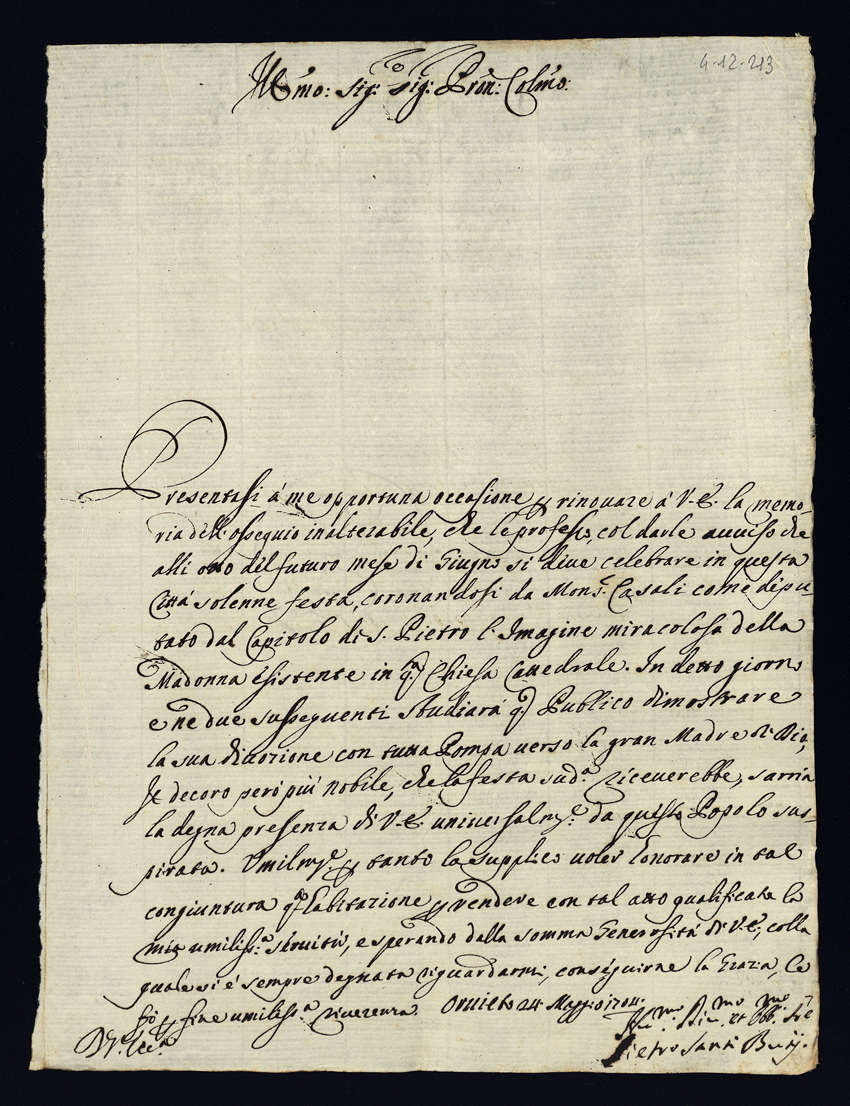 4-12-213
Illmo: Sig:re Sig: Pron: Colmo:
Presentasi á me opportuna occasione di rinouare á V.E. la memo-
ria dell'ossequio inalterabile, che le professo col darle auuiso che
alli otto del futuro mese di Giugno si deue celebrare in questa
Cittá solenne festa, coronandosi da Mons.r Casali come depu-
tato dal Capitolo di S. Pietro l'Imagine miracolosa della
Madonna esistente in q.a Chiesa Cattedrale. In detto giorno
e ne due susseguenti studiará q.o Publico dimostrare
la sua diuozione con tutta Pompa uerso la gran Madre di Dio,
Il decoro peró piú nobile, che la festa sud.a riceuerebbe, sarria
la degna presenza di V.E. uniuersalm.te da questo Popolo sus-
pirata. Umilm.te per tanto la supplico uoler honorare in tal
congiuntura q.a habitazione per rendere con tal atto qualificata la
mia umiliss.a seruitú, e sperando dalla somma Generositá di V.E., colla
quale si é sempre degnata riguardarmi, conseguirne la Grazia, le
fo per fine umiliss.a riuerenza. Oruieto 24 Maggio 1704.
D. V. Ecc.a
Um.mo Diu.mo et Obb.mo Sre
Pietro Santi Butij.